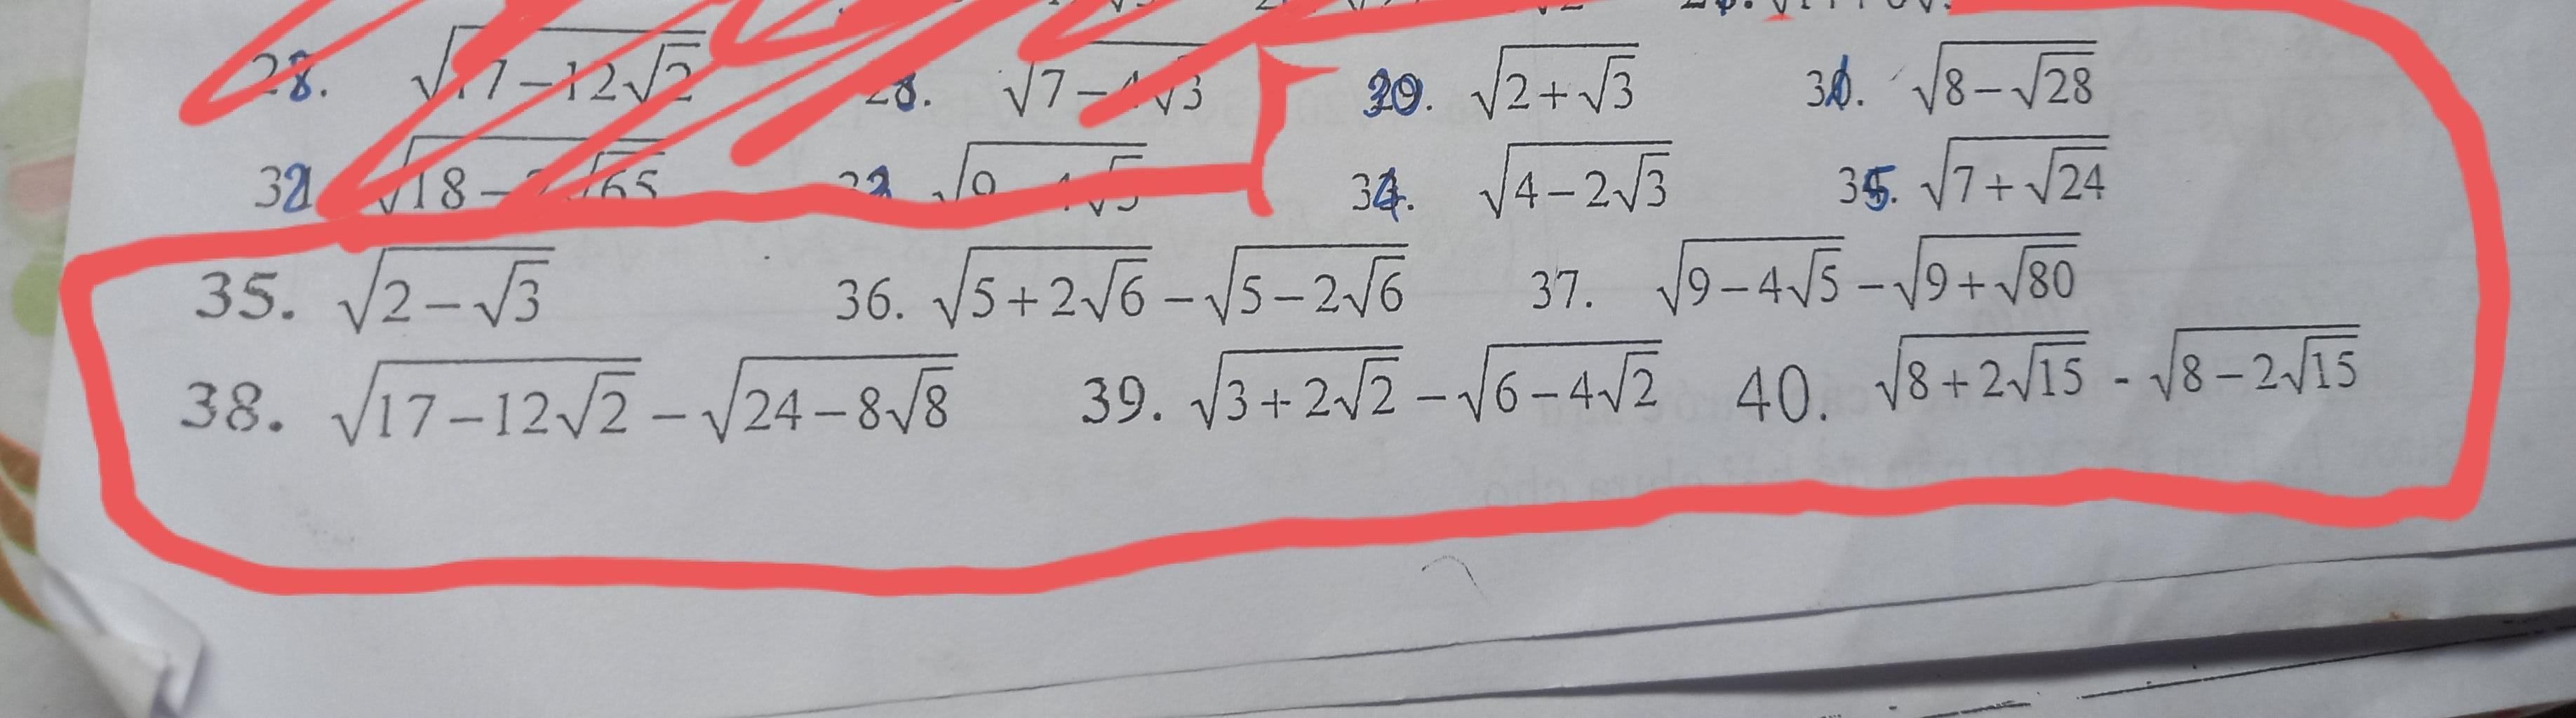 28. √(17−12√2) √(7−4√3) 30. √(2+√3) √(8−√28)
32 √(18−2√65) √(9−4√5) 34. √(4−2√3) 35. √(7+√24)
35. √(2−√3) 36. √(5+2√6) − √(5−2√6) 37. √(9−4√5) − √(9+√80)
38. √(17−12√2) − √(24−8√8) 39. √(3+2√2) − √(6−4√2) 40. √(8+2√15) - √(8−2√15)